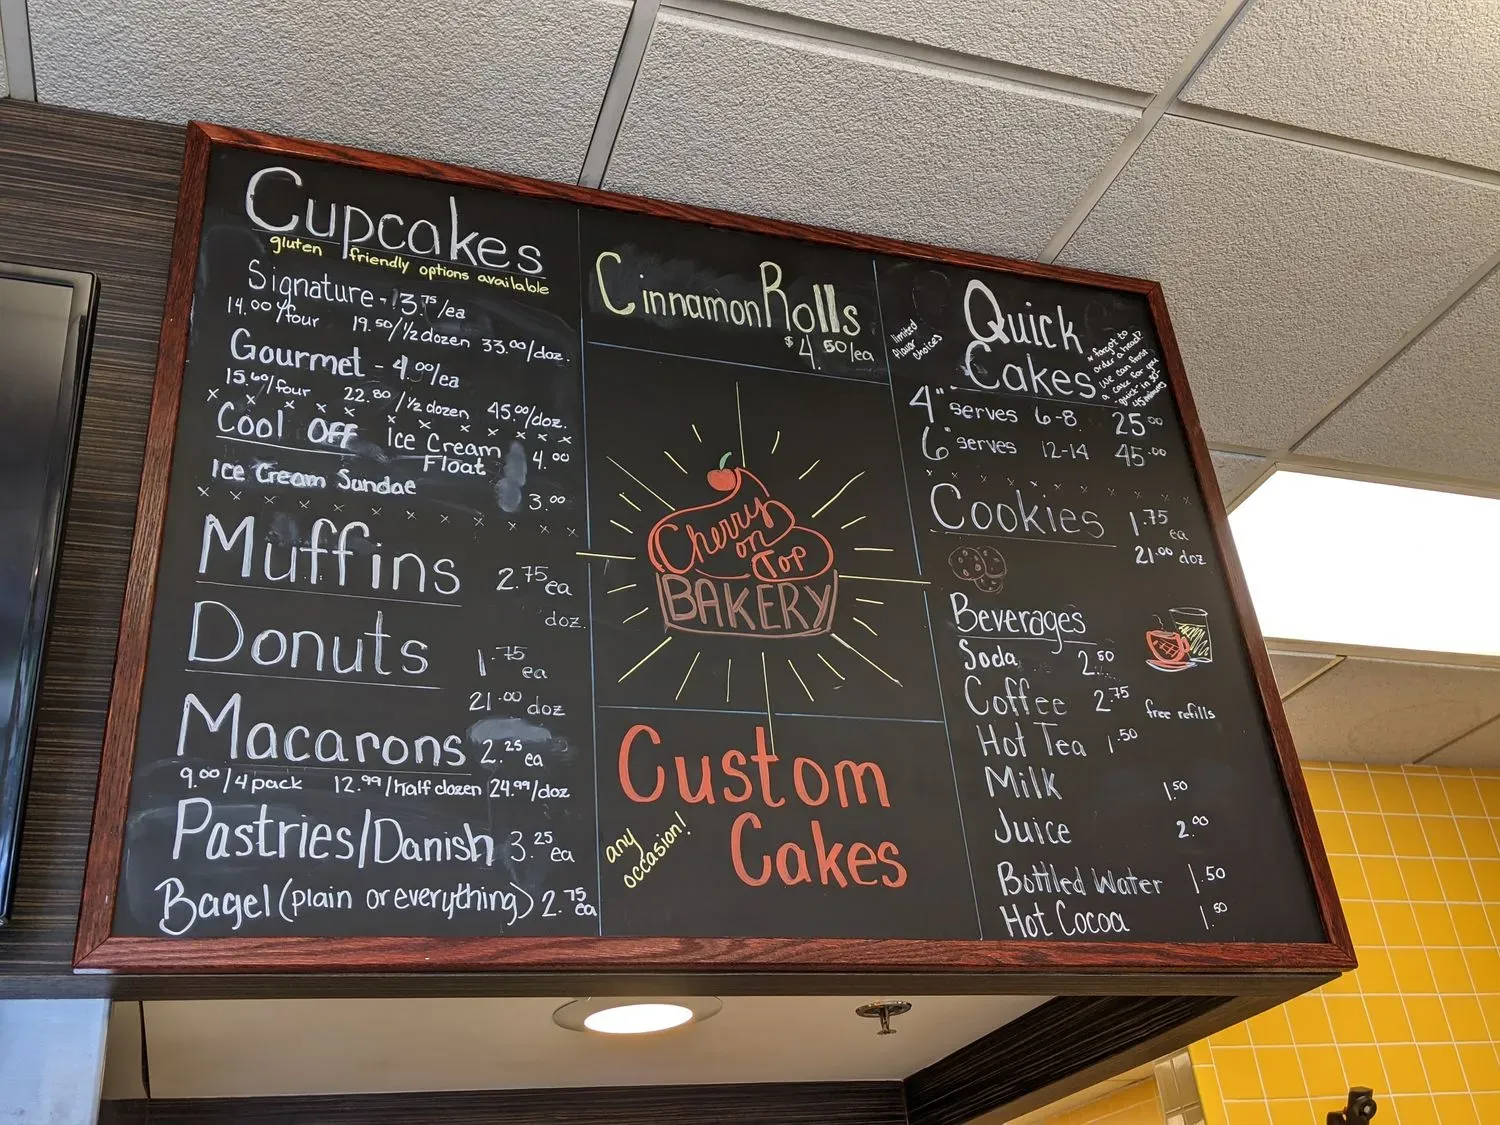 Cupcakes
gluten friendly options available
Signature - 3.75/ea
14.00/four 19.50/½dozen 33.00/doz.
Gourmet - 4.00/ea
15.60/four 22.80/½dozen 45.00/doz.
Cool Off Ice Cream Float 4.00
Ice Cream Sundae 3.00
Muffins 2.75 ea
doz.
Donuts 1.75 ea
21.00 doz
Macarons 2.25 ea
9.00/4pack 12.99/half dozen 24.99/doz
Pastries/Danish 3.25 ea
Bagel (plain or everything) 2.75 ea
Cinnamon Rolls
$4.50/ea
Cherry
on
Top
BAKERY
Custom
Cakes
any
occasion!
Quick
Cakes
limited
flavor
choices
* forgot to
order ahead?
We can frost
a cake for you
"quick" in 30-
45 minutes
4" serves 6-8 25.00
6" serves 12-14 45.00
Cookies 1.75 ea
21.00 doz
Beverages
Soda 2.50
Coffee 2.75 free refills
Hot Tea 1.50
Milk 1.50
Juice 2.00
Bottled Water 1.50
Hot Cocoa 1.50